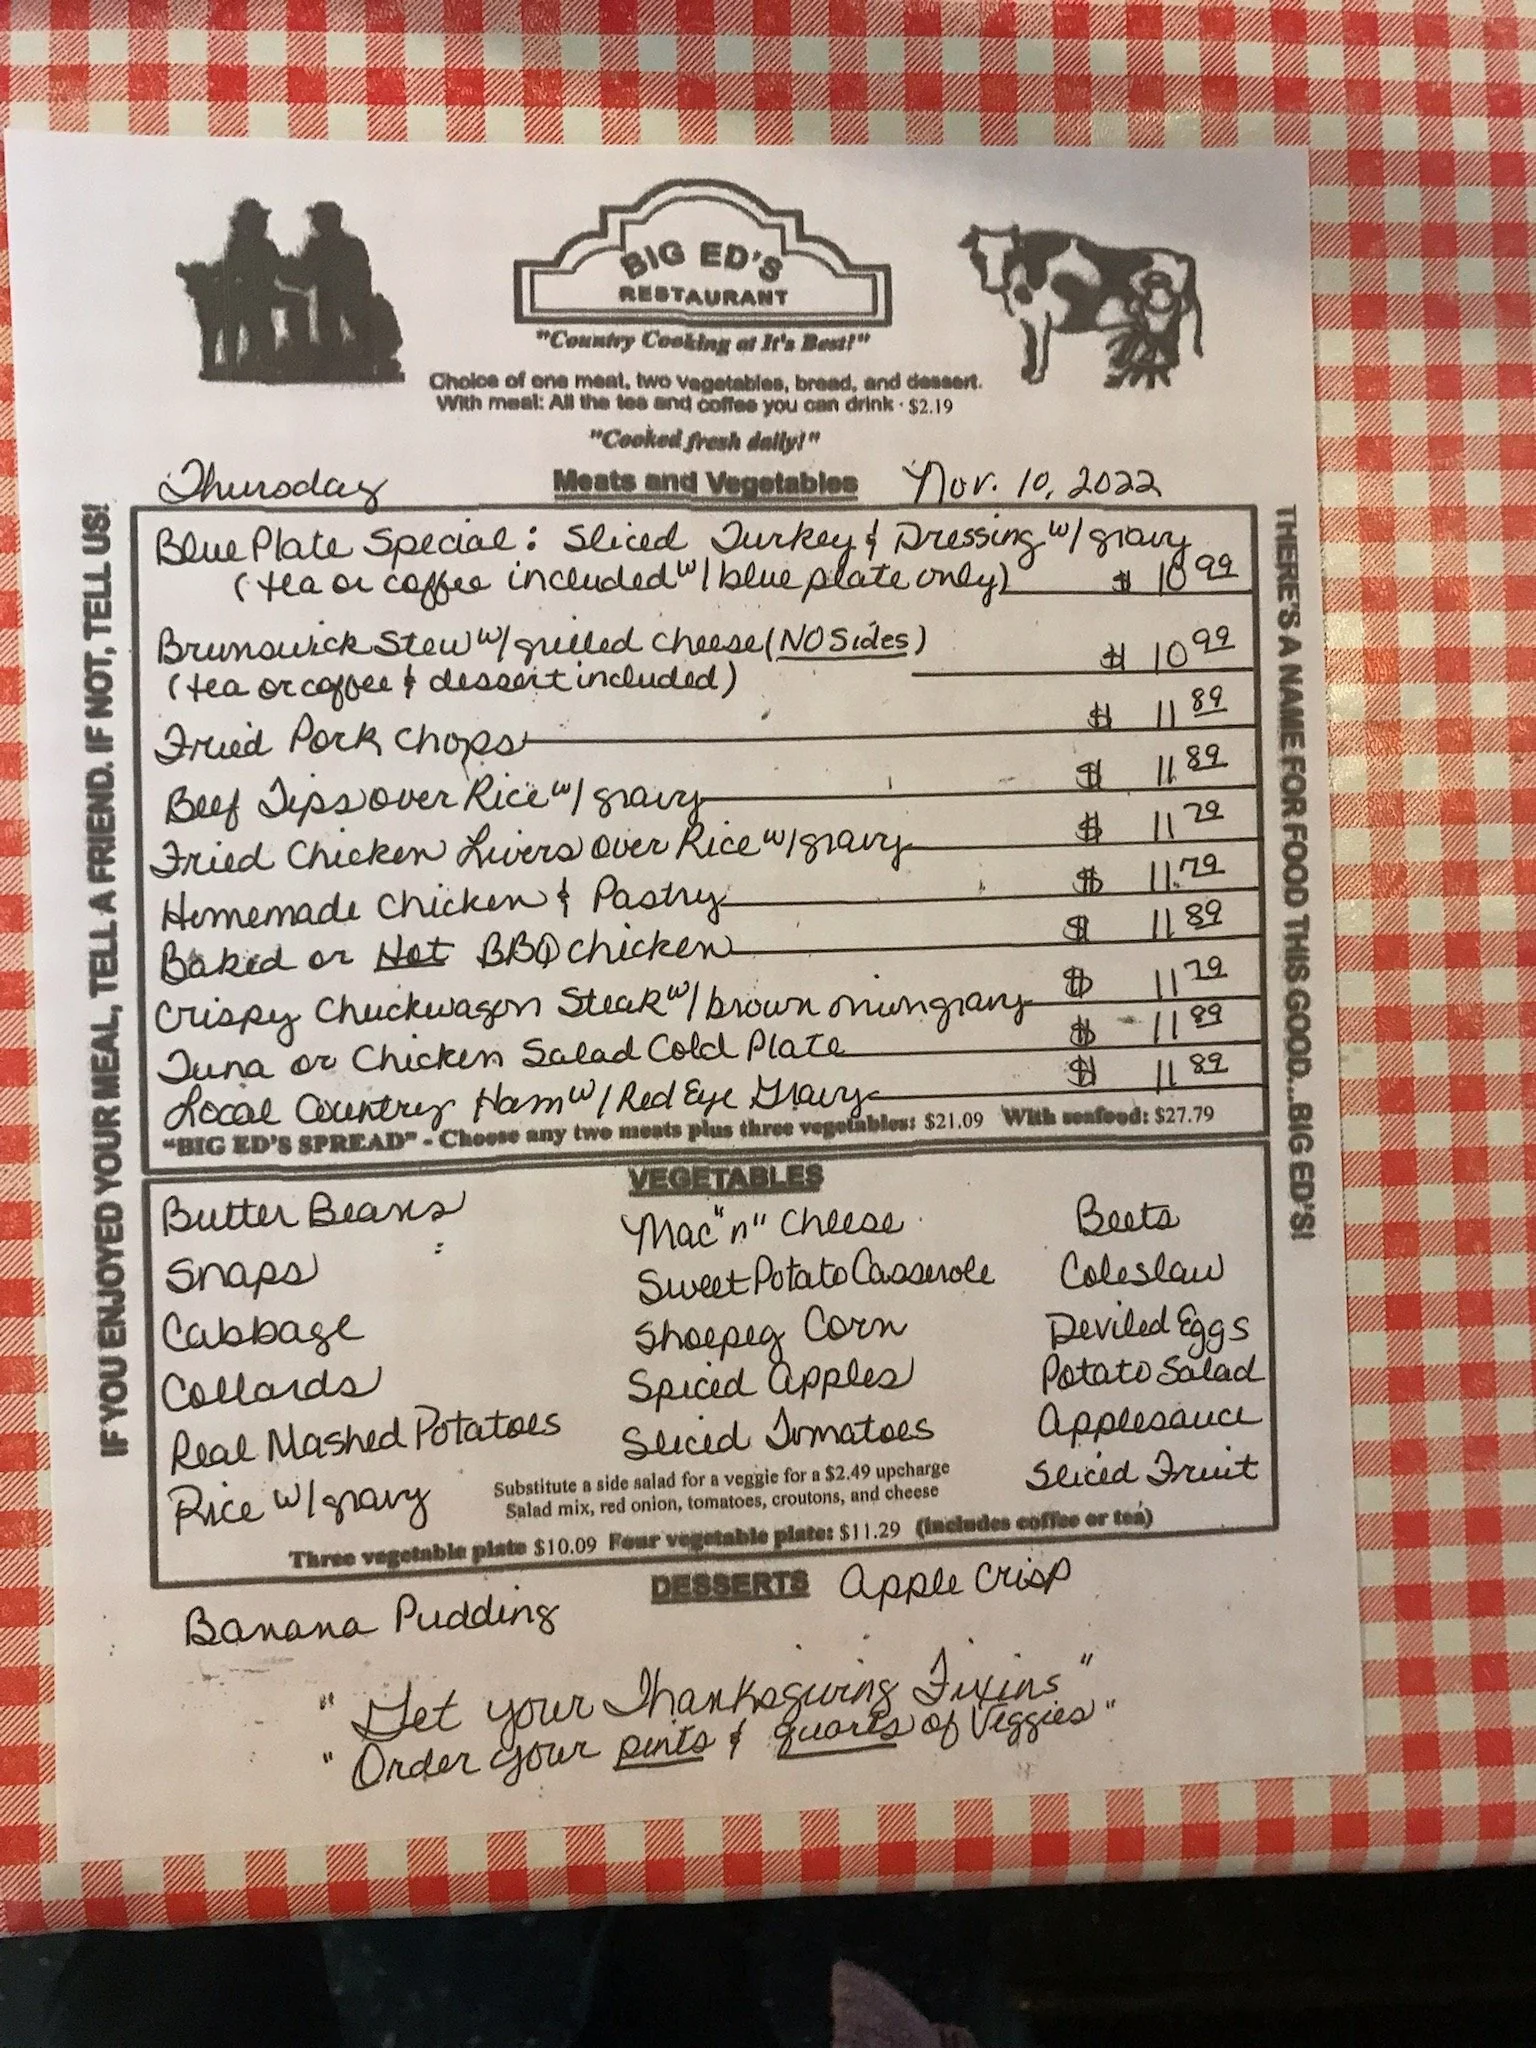 BIG ED'S
RESTAURANT
"Country Cooking at It's Best!"
Choice of one meat, two vegetables, bread, and dessert.
With meal: All the tea and coffee you can drink · $2.19
"Cooked fresh daily!"
Thursday Meats and Vegetables Nov. 10, 2022
IF YOU ENJOYED YOUR MEAL, TELL A FRIEND. IF NOT, TELL US!
Blue Plate Special: Sliced Turkey & Dressing w/ gravy
(tea or coffee included w/ blue plate only) $ 10 99
Brunswick Stew w/ grilled cheese (NO Sides) $ 10 99
(tea or coffee & dessert included)
Fried Pork Chops $ 11 89
Beef Tips over Rice w/ gravy $ 11.89
Fried Chicken Livers over Rice w/ gravy $ 11 79
Homemade Chicken & Pastry $ 11.79
Baked or Hot BBQ chicken $ 11 89
Crispy Chuckwagon Steak w/ brown onion gravy $ 11 79
Tuna or Chicken Salad Cold Plate $ 11 89
Local Country Ham w/ Red Eye Gravy $ 11 89
"BIG ED'S SPREAD" - Choose any two meats plus three vegetables: $21.09 With seafood: $27.79
THERE'S A NAME FOR FOOD THIS GOOD...BIG ED'S!
VEGETABLES
Butter Beans Mac "n" Cheese Beets
Snaps Sweet Potato Casserole Coleslaw
Cabbage Shoepeg Corn Deviled Eggs
Collards Spiced Apples Potato Salad
Real Mashed Potatoes Sliced Tomatoes Applesauce
Rice w/ gravy Sliced Fruit
Substitute a side salad for a veggie for a $2.49 upcharge
Salad mix, red onion, tomatoes, croutons, and cheese
Three vegetable plate $10.09 Four vegetable plate: $11.29 (includes coffee or tea)
DESSERTS
Banana Pudding Apple Crisp
"Get your Thanksgiving Fixins"
"Order your pints & quarts of Veggies"